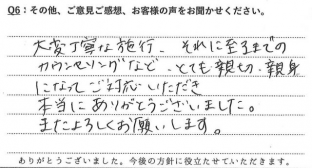 Q6：その他、ご意見ご感想、お客様の声をお聞かせください。
大変丁寧な施行、それに至るまでの
カウンセリングなど、とても親切、親身
になってご対応いただき
本当にありがとうございました。
またよろしくお願いします。
ありがとうございました。今後の方針に役立たせていただきます。